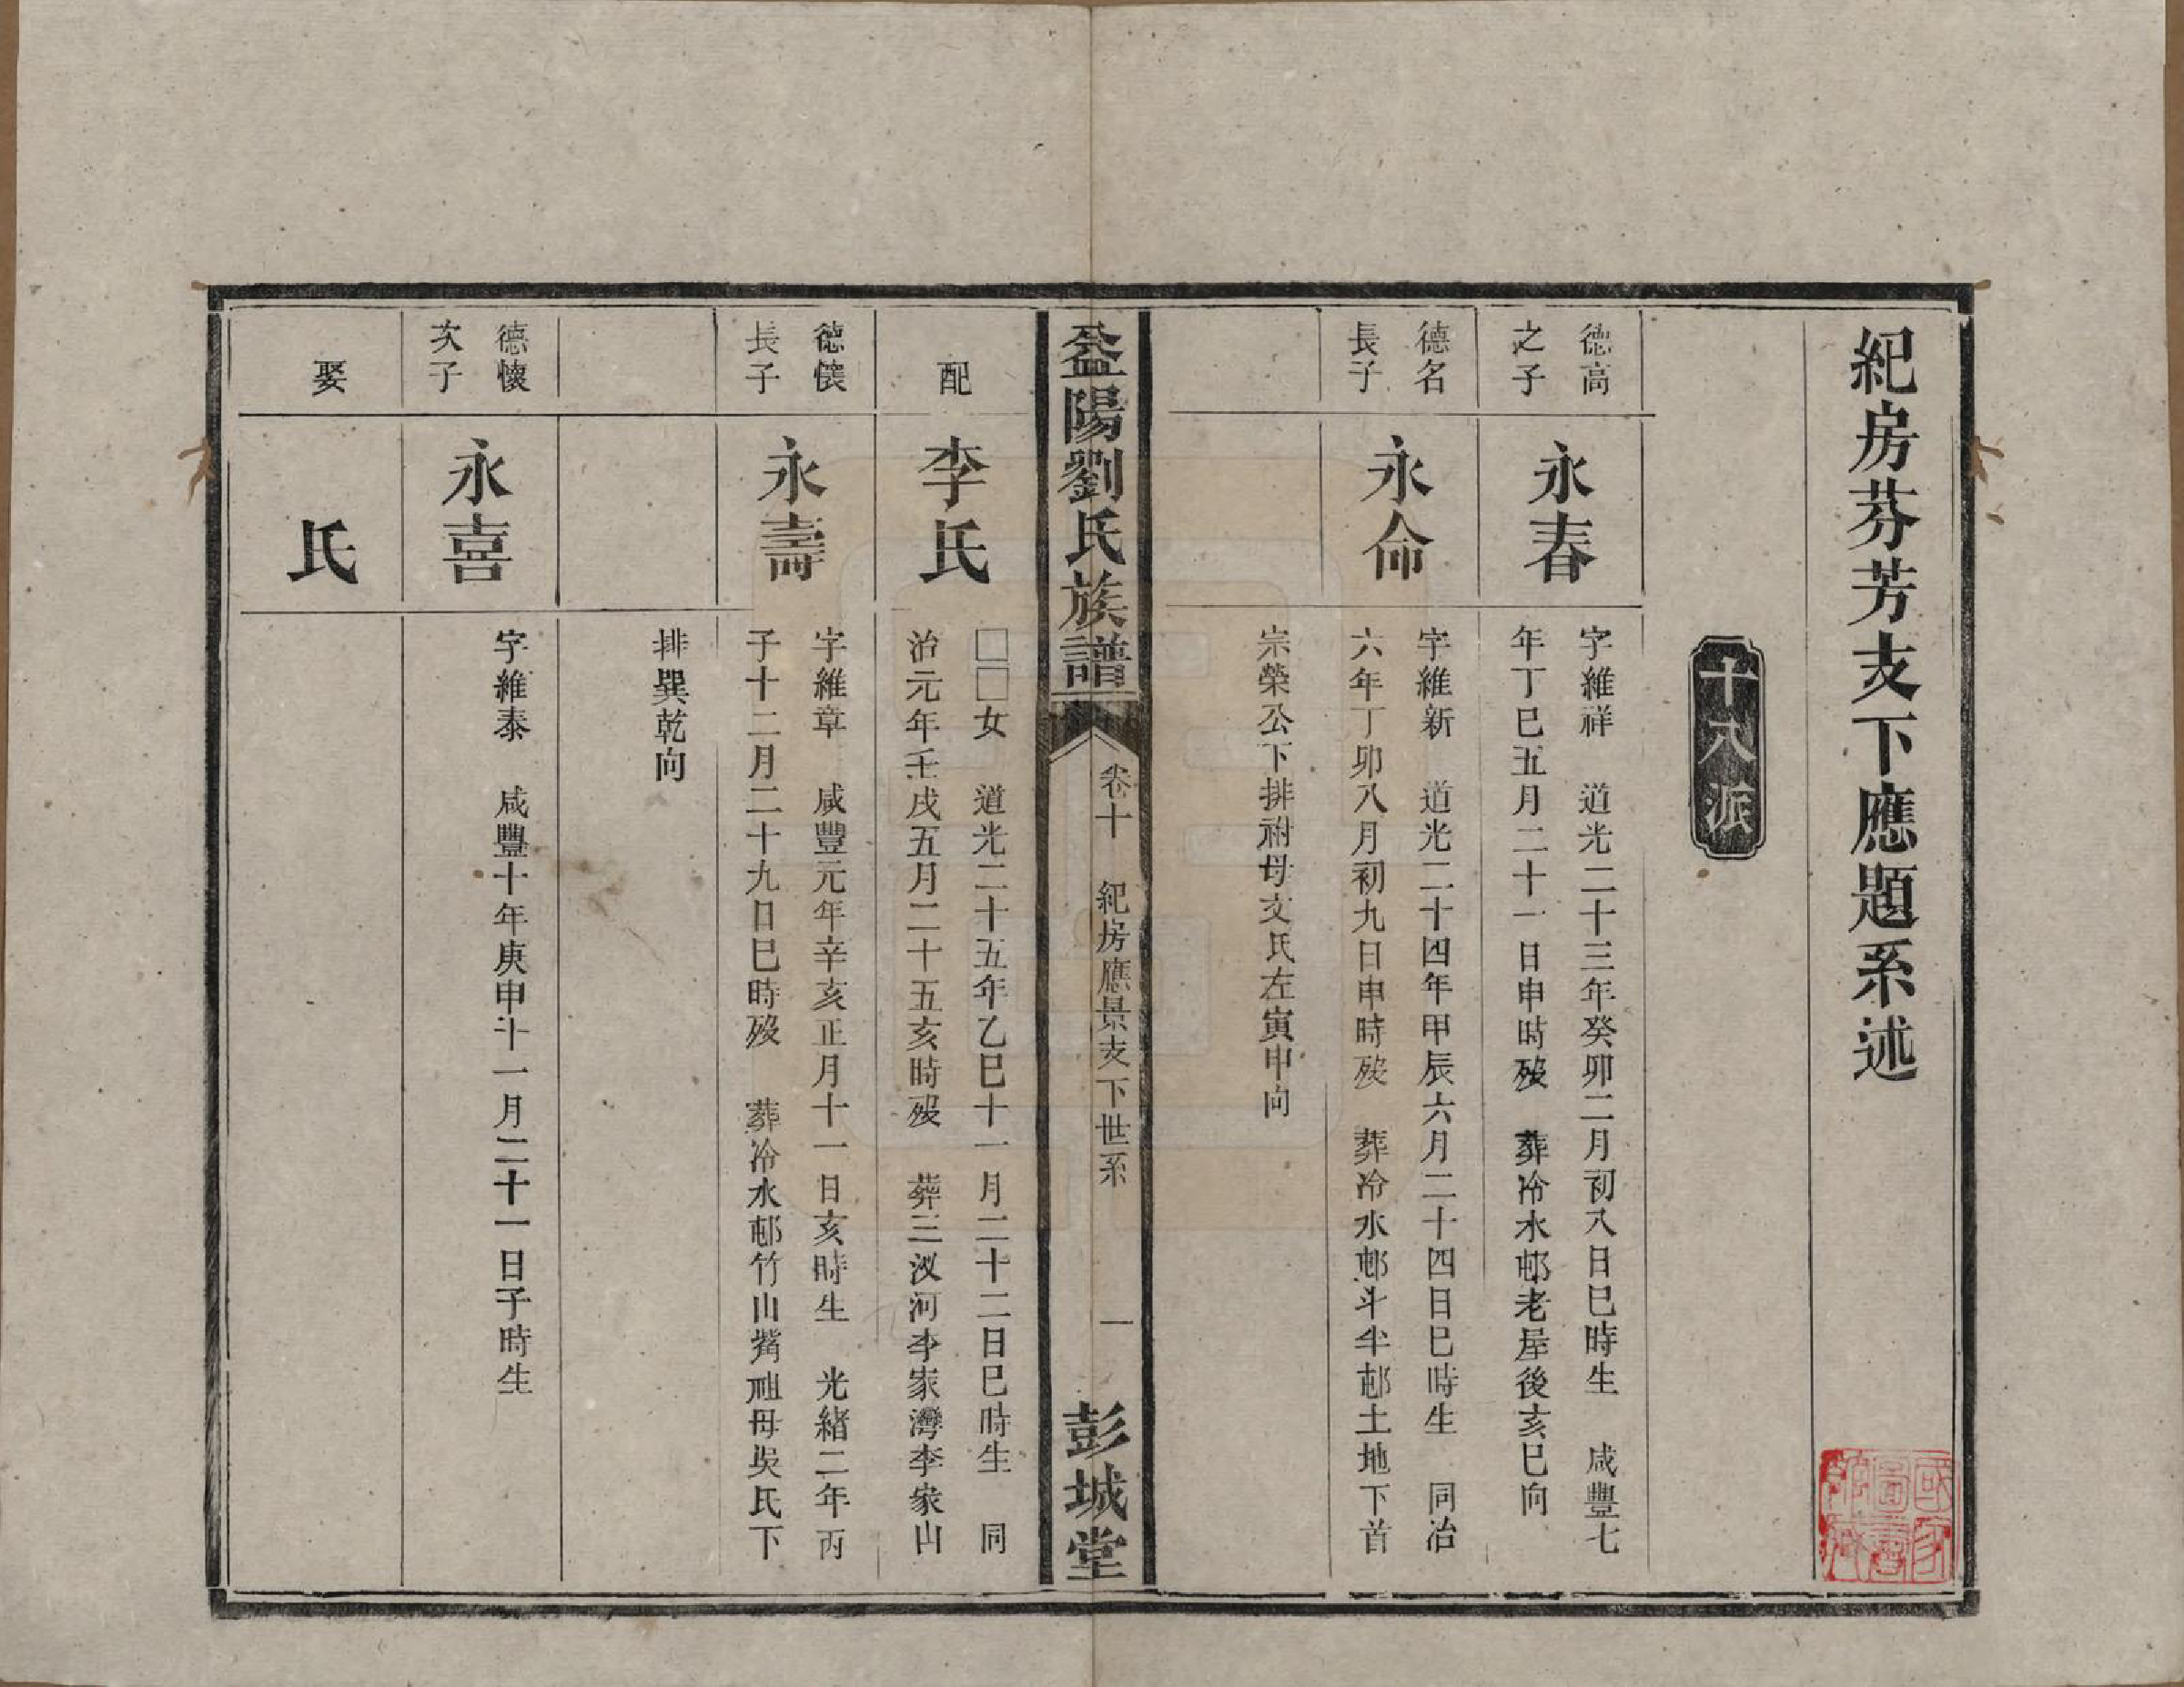 紀房芬芳支下應題系述
十八派
德高
之子
永春
字維祥 道光二十三年癸卯二月初八日巳時生 咸豐七
年丁巳五月二十一日申時歿 葬冷水邨老屋後亥巳向
德名
長子
永命
字維新 道光二十四年甲辰六月二十四日巳時生 同治
六年丁卯八月初九日申時歿 葬冷水邨斗半邨土地下首
宗榮公下排祔母文氏左寅申向
益陽劉氏族譜
卷十 紀房應景支下世系
一
彭城堂
配
李氏
□□女 道光二十五年乙巳十一月二十二日巳時生 同
治元年壬戌五月二十五亥時歿 葬三汊河李家灣李家山
德懷
長子
永壽
字維章 咸豐元年辛亥正月十一日亥時生 光緒二年丙
子十二月二十九日巳時歿 葬冷水邨竹山嘴祖母吳氏下
排巽乾向
德懷
次子
永喜
字維泰 咸豐十年庚申十一月二十一日子時生
娶
氏
國家
圖書
館藏